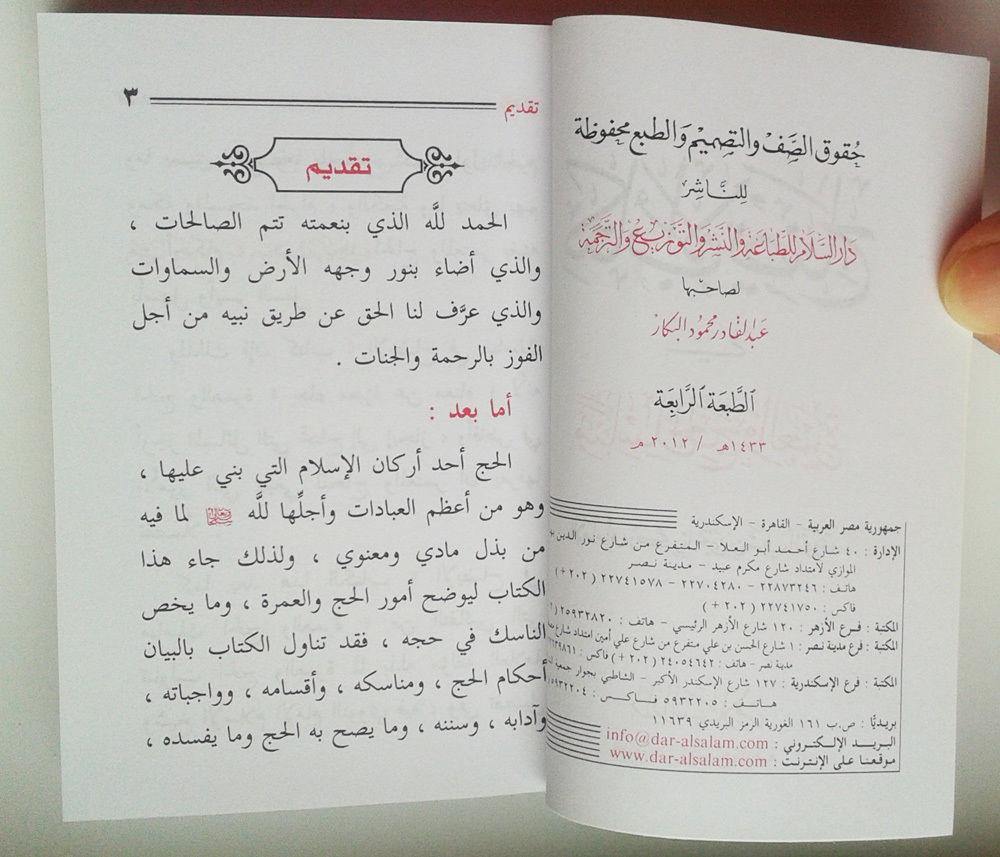 حقوق الصف والتصميم والطبع محفوظة
للناشر
دار السلام للطباعة والنشر والتوزيع والترجمة
لصاحبها
عبد القادر محمود البكار
الطبعة الرابعة
١٤٣٣هـ / ٢٠١٢ م
جمهورية مصر العربية - القاهرة - الإسكندرية
الإدارة : ٤٠ شارع أحمد أبو العلا - المتفرع من شارع نور الدين
الموازي لامتداد شارع مكرم عبيد - مدينة نصر
هاتف : ٢٢٨٧٣٢٤٦ - ٢٢٧٠٤٢٨٠ - ٢٢٧٤١٥٧٨ ( ٢٠٢ + )
فاكس : ٢٢٧٤١٧٥٠ ( ٢٠٢ + )
المكتبة : فرع الأزهر : ١٢٠ شارع الأزهر الرئيسي - هاتف : ٢٥٩٣٢٨٢٠
المكتبة : فرع مدينة نصر : ١ شارع الحسن بن علي متفرع من شارع علي أمين امتداد شارع
مدينة نصر - هاتف : ٢٤٠٥٤٦٤٢ ( ٢٠٢ + ) فاكس :
المكتبة : فرع الإسكندرية : ١٢٧ شارع الإسكندر الأكبر - الشاطبي بجوار جمعية
هاتف : ٥٩٣٢٢٠٥ فاكس : ٥٩٣٢٢٠٤
بريديًّا : ص.ب ١٦١ الغورية الرمز البريدي ١١٦٣٩
البريد الإلكتروني : info@dar-alsalam.com
موقعنا على الإنترنت : www.dar-alsalam.com
تقديم ٣
تقديم
الحمد للَّه الذي بنعمته تتم الصالحات ،
والذي أضاء بنور وجهه الأرض والسماوات
والذي عرَّف لنا الحق عن طريق نبيه من أجل
الفوز بالرحمة والجنات .
أما بعد :
الحج أحد أركان الإسلام التي بني عليها ،
وهو من أعظم العبادات وأجلِّها للَّه لما فيه
من بذل مادي ومعنوي ، ولذلك جاء هذا
الكتاب ليوضح أمور الحج والعمرة ، وما يخص
الناسك في حجه ، فقد تناول الكتاب بالبيان
أحكام الحج ، ومناسكه ، وأقسامه ، وواجباته ،
وآدابه ، وسننه ، وما يصح به الحج وما يفسده ،